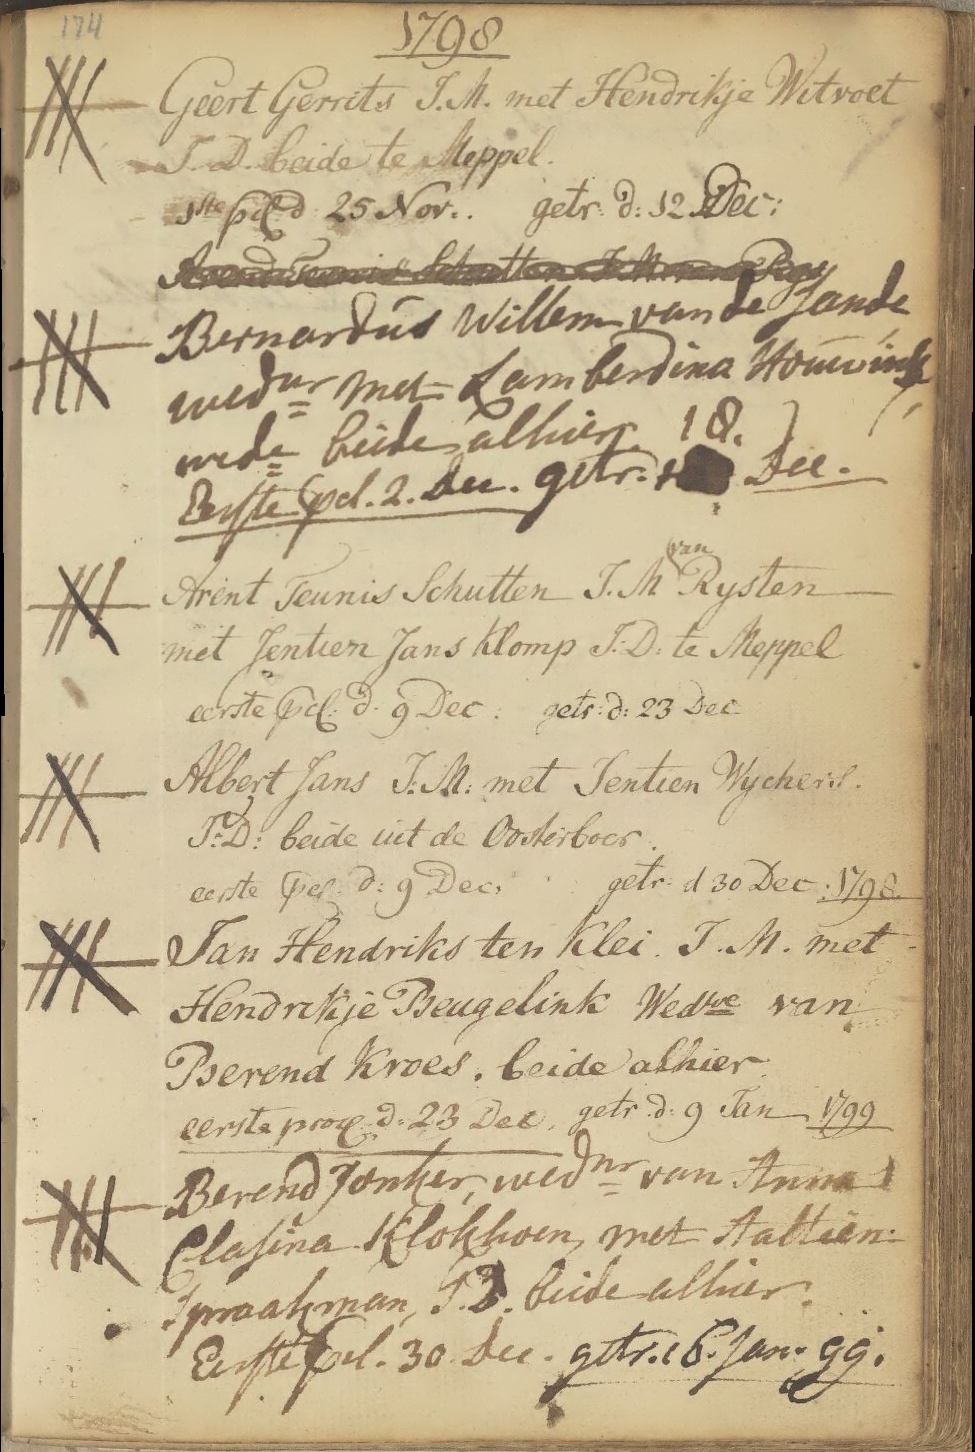 174
1798
Geert Gerrits J. M. met Hendrikje Witvoet
J. D. beide te Meppel.
1ste pcl d 25 Nov. . getr: d: 12 Dec:
Arend Teunis Schutten J. M. van
Bernardus Willem van de Sande
wedur met Lamberdina Houwink
wede beide alhier. 18.
Eerste pcl. 2. Dec. getr. Dec.
van
Arent Teunis Schutten J. M Rysten
met Jentien Jans Klomp J: D: te Meppel
eerste pcl: d. 9 Dec: getr: d: 23 Dec
Albert Jans J: M: met Jentien Wychers.
J: D: beide uit de Oosterboer.
eerste pcl: d: 9 Dec: getr: d 30 Dec: 1798.
Jan Hendriks ten Klei. J. M. met
Hendrikje Beugelink Wedwe van
Berend Kroes. beide alhier
eerste procl: d: 23 Dec. getr: d: 9 Jan 1799
Berend Jonker, wednr van Anna
Clasina Klokhoen, met Aaltien
Spraakman, J. D. beide alhier.
Eerste pcl. 30. Dec. getr. 16. Jan. 99.